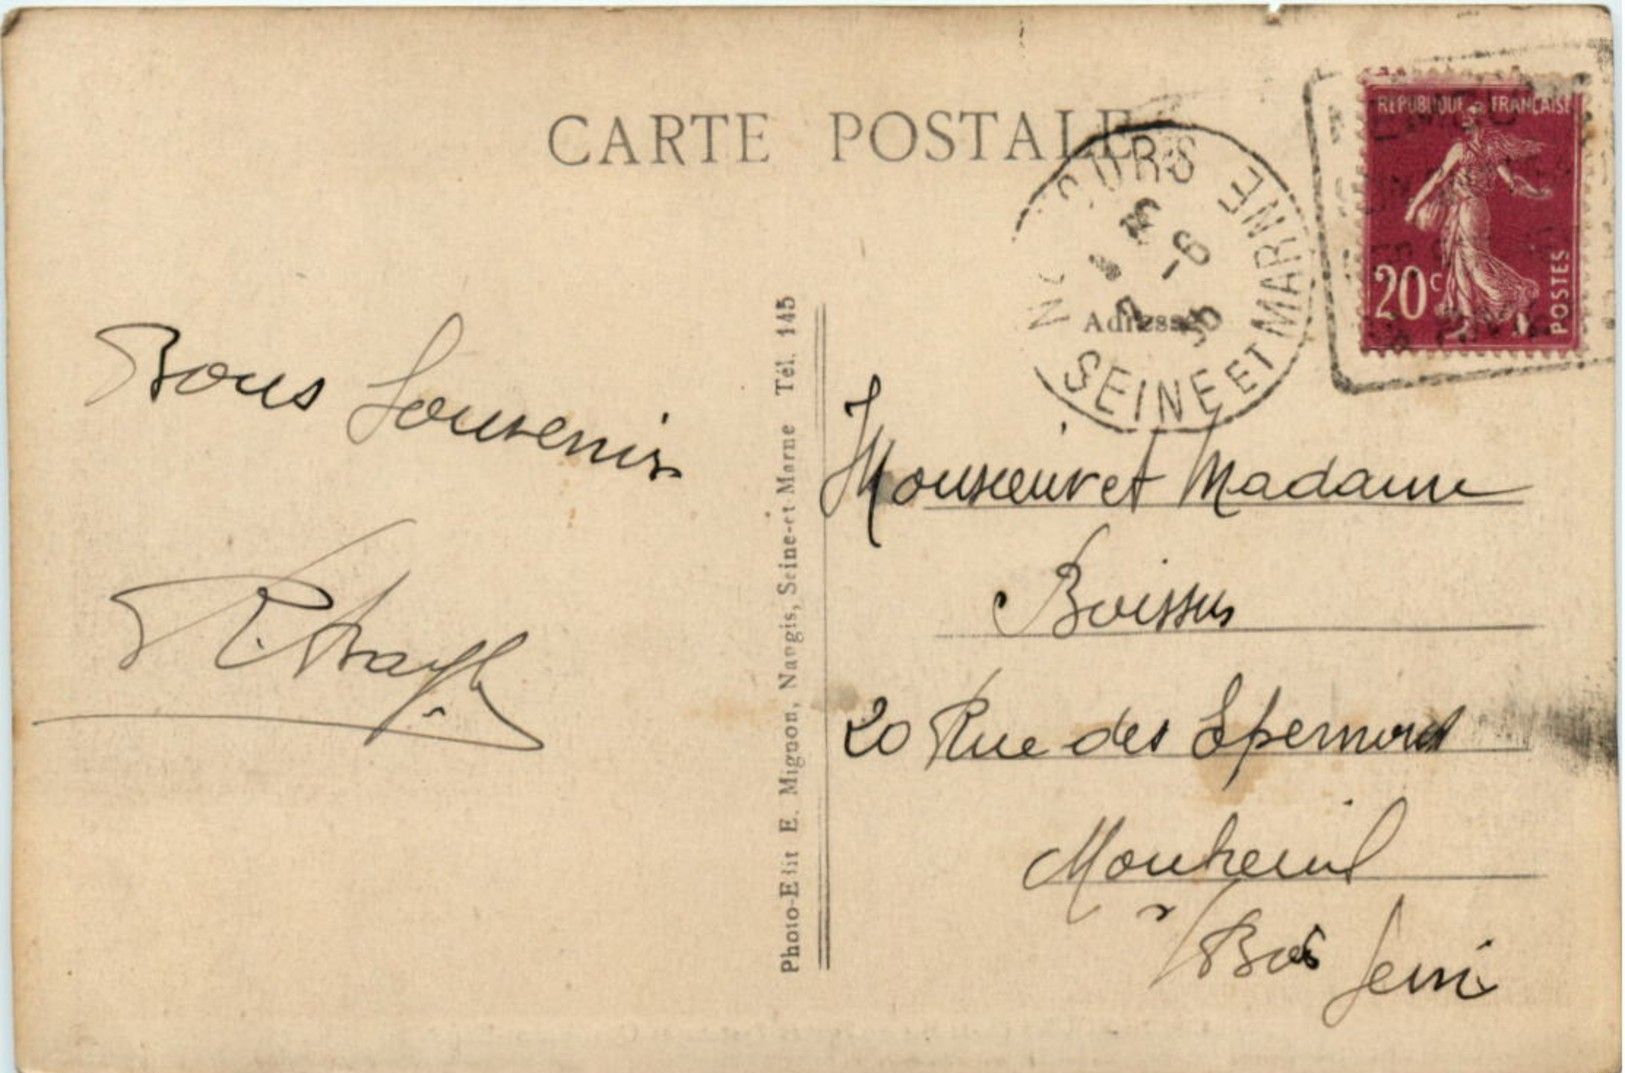 CARTE POSTALE
RÉPUBLIQUE FRANÇAISE
20c
POSTES
SEINE ET MARNE
Adresse
Bons Souvenirs
Photo-Edit E. Mignon, Nangis, Seine-et Marne Tél. 145
Monsieur et Madame
Boissus
20 Rue des
Montreuil
s/ Bois Seine